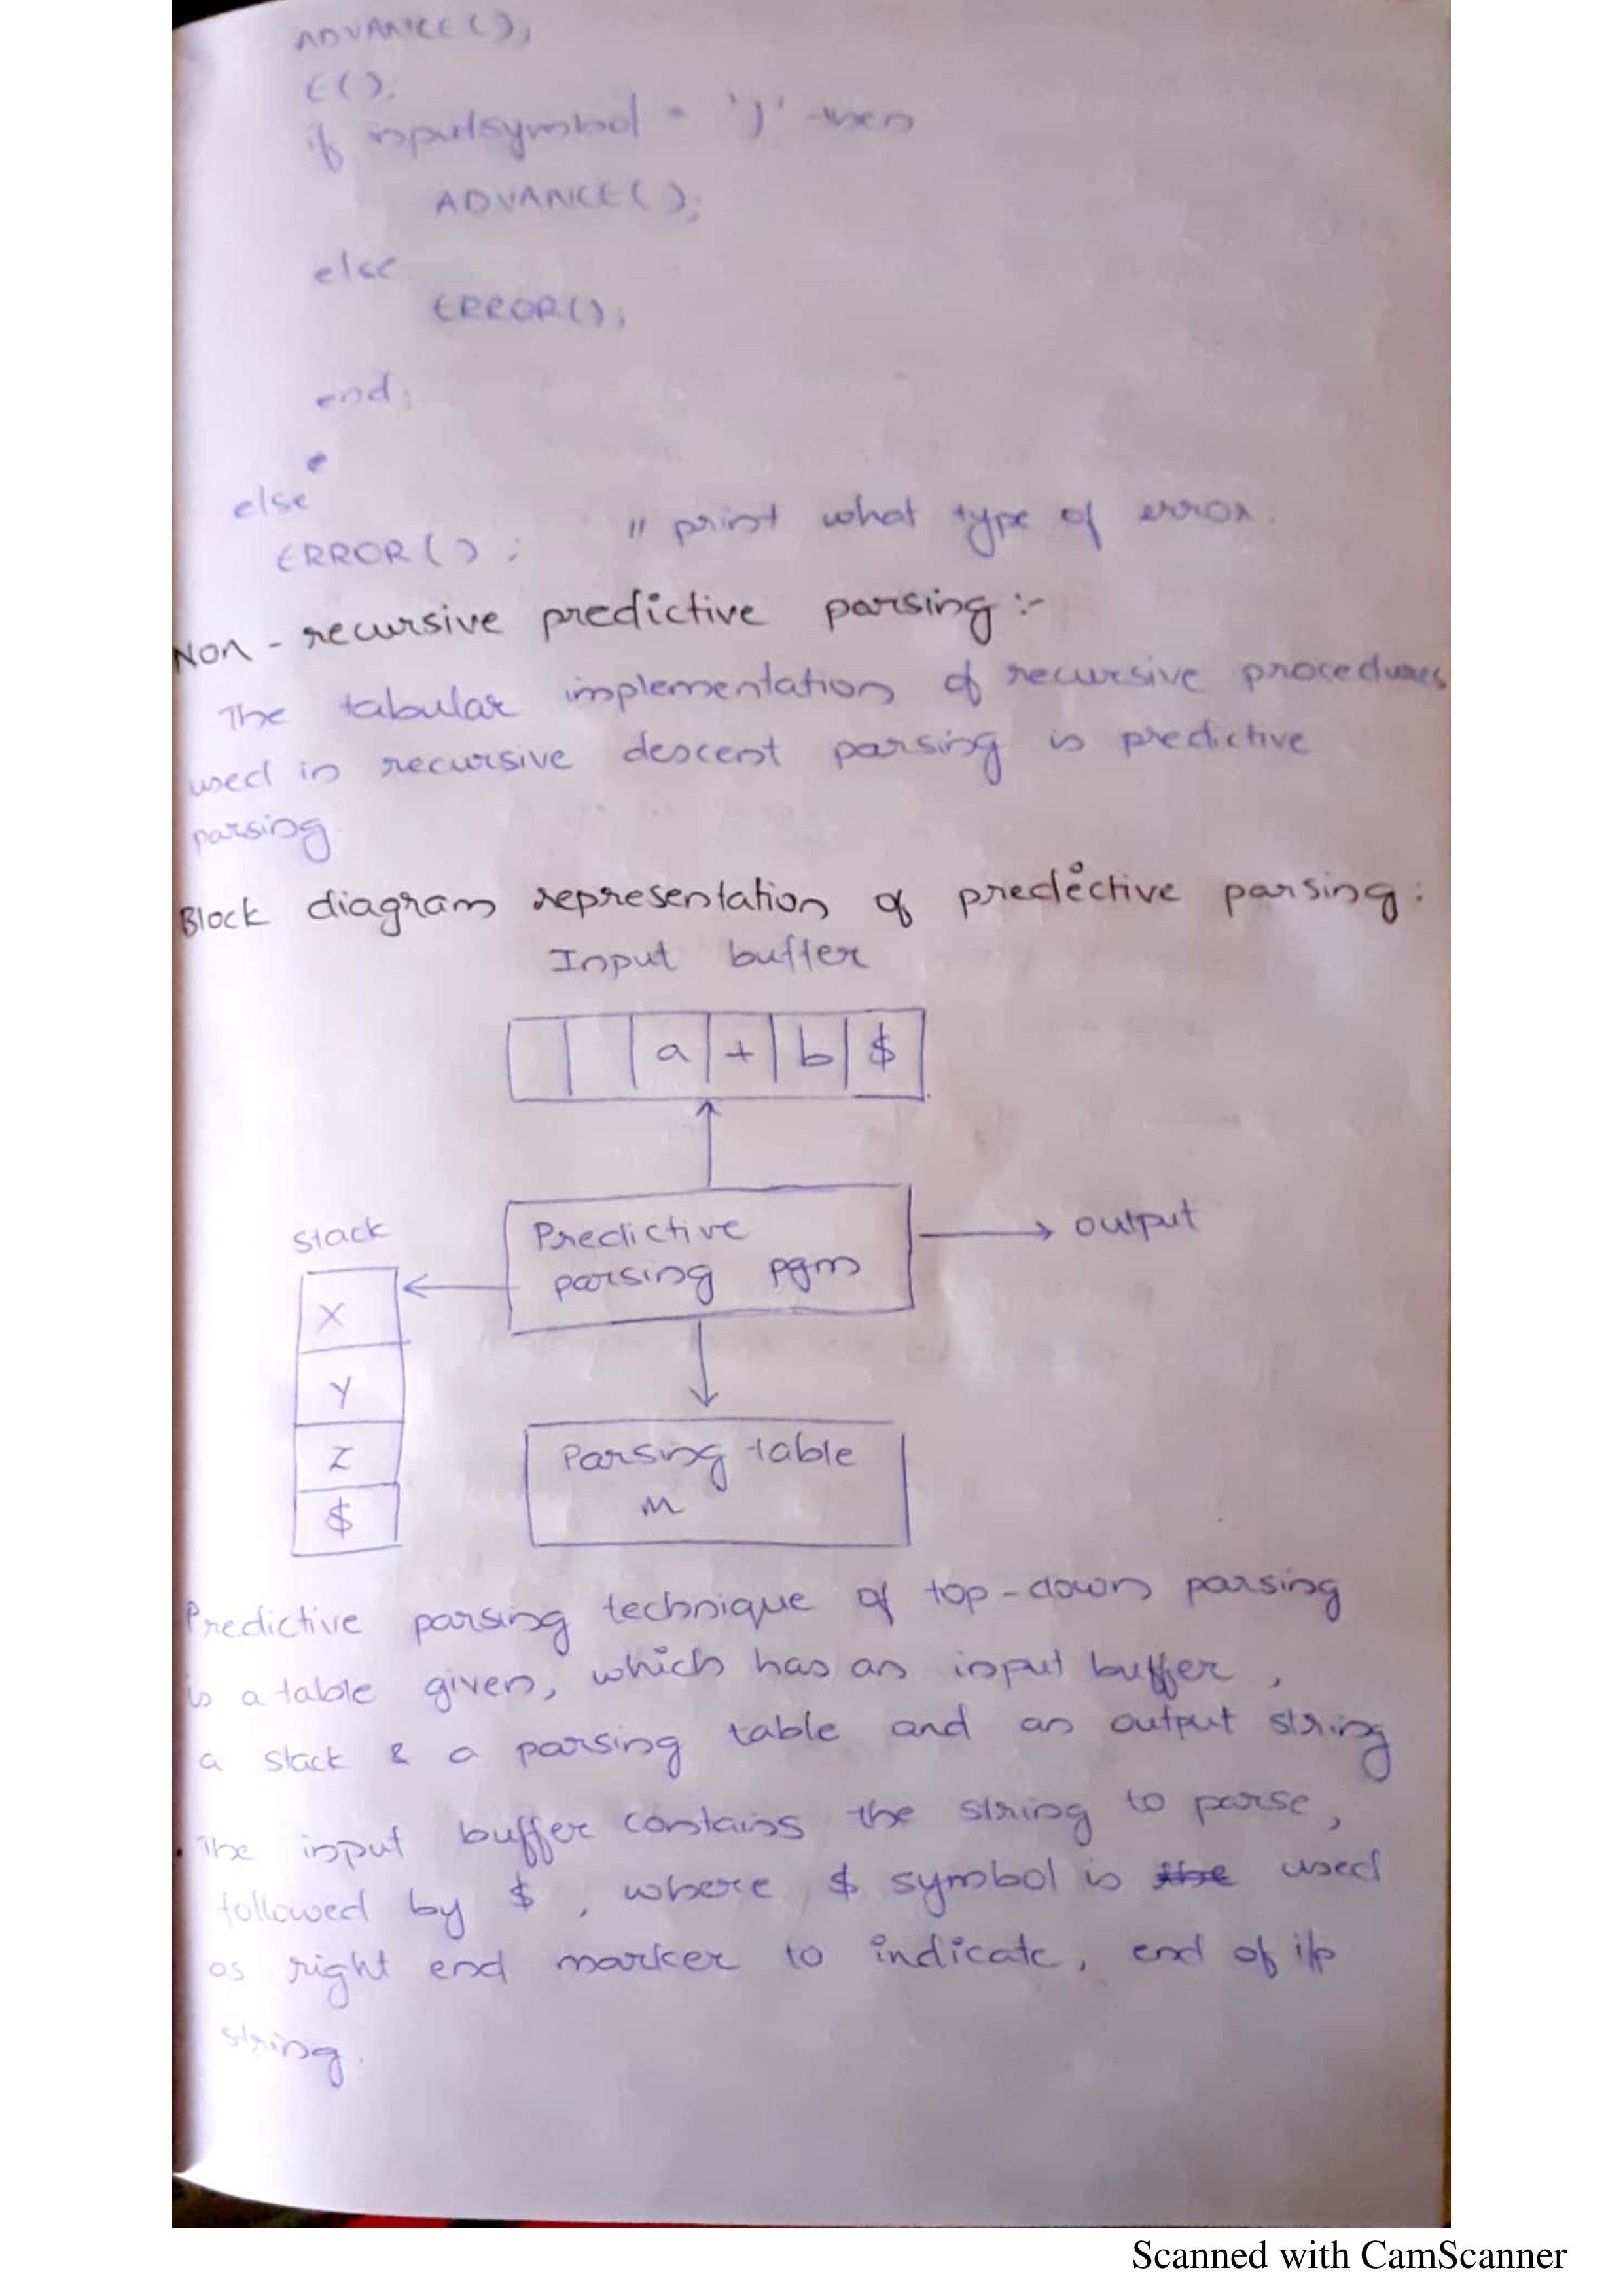 ADVANCE();
E();
if inputsymbol = ')' then
ADVANCE();
else
ERROR();
end;
else
ERROR(); // print what type of error.
Non - recursive predictive parsing :-
The tabular implementation of recursive procedures
used in recursive descent parsing is predictive
parsing.
Block diagram representation of predictive parsing :
Input buffer
a + b $
stack
Predictive
parsing pgm
output
X
Y
Z
$
Parsing table
M
Predictive parsing technique of top-down parsing
is a table given, which has an input buffer,
a stack & a parsing table and an output string
. The input buffer contains the string to parse,
followed by $, where $ symbol is the used
as right end marker to indicate, end of i/p
string.
Scanned with CamScanner